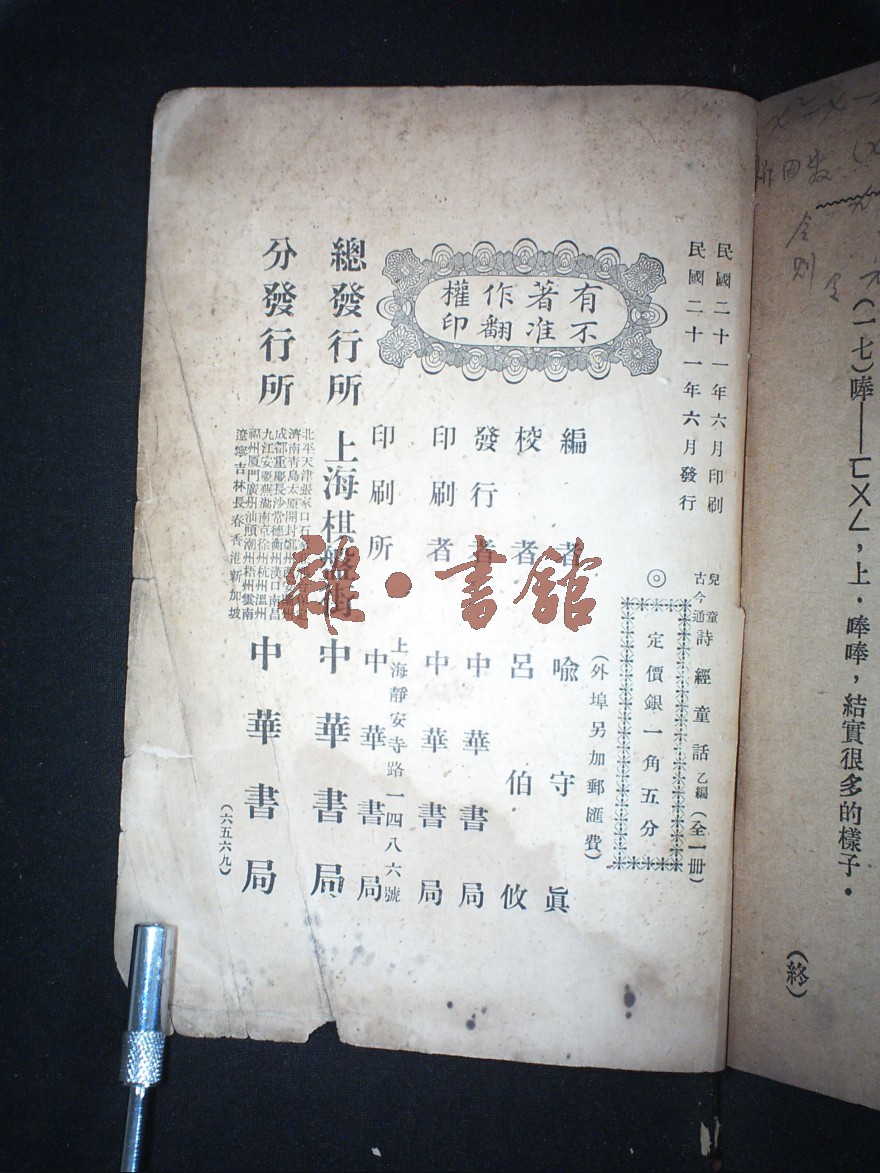 (一七)唪——ㄈㄨㄥ,上.唪唪,結實很多的樣子.
(終)
民國二十一年六月印刷
民國二十一年六月發行
有著作權
不准翻印
兒童古今通詩經童話乙編(全一冊)
◎
定價銀一角五分
(外埠另加郵匯費)
編者 喩守眞
校者 呂伯攸
發行者 中華書局
印刷者 中華書局
印刷所 上海靜安寺路一四八六號 中華書局
總發行所 上海棋盤街 中華書局
分發行所
北平天津張家口石
濟南靑島太原開封鄭州
成都重慶長沙常德衡州漢口南昌
九江安慶蕪湖南京徐州杭州溫州
福州厦門廣州汕頭潮州梧州雲南
遼寧吉林長春香港新加坡
中華書局
(六五六九)
雜·書館